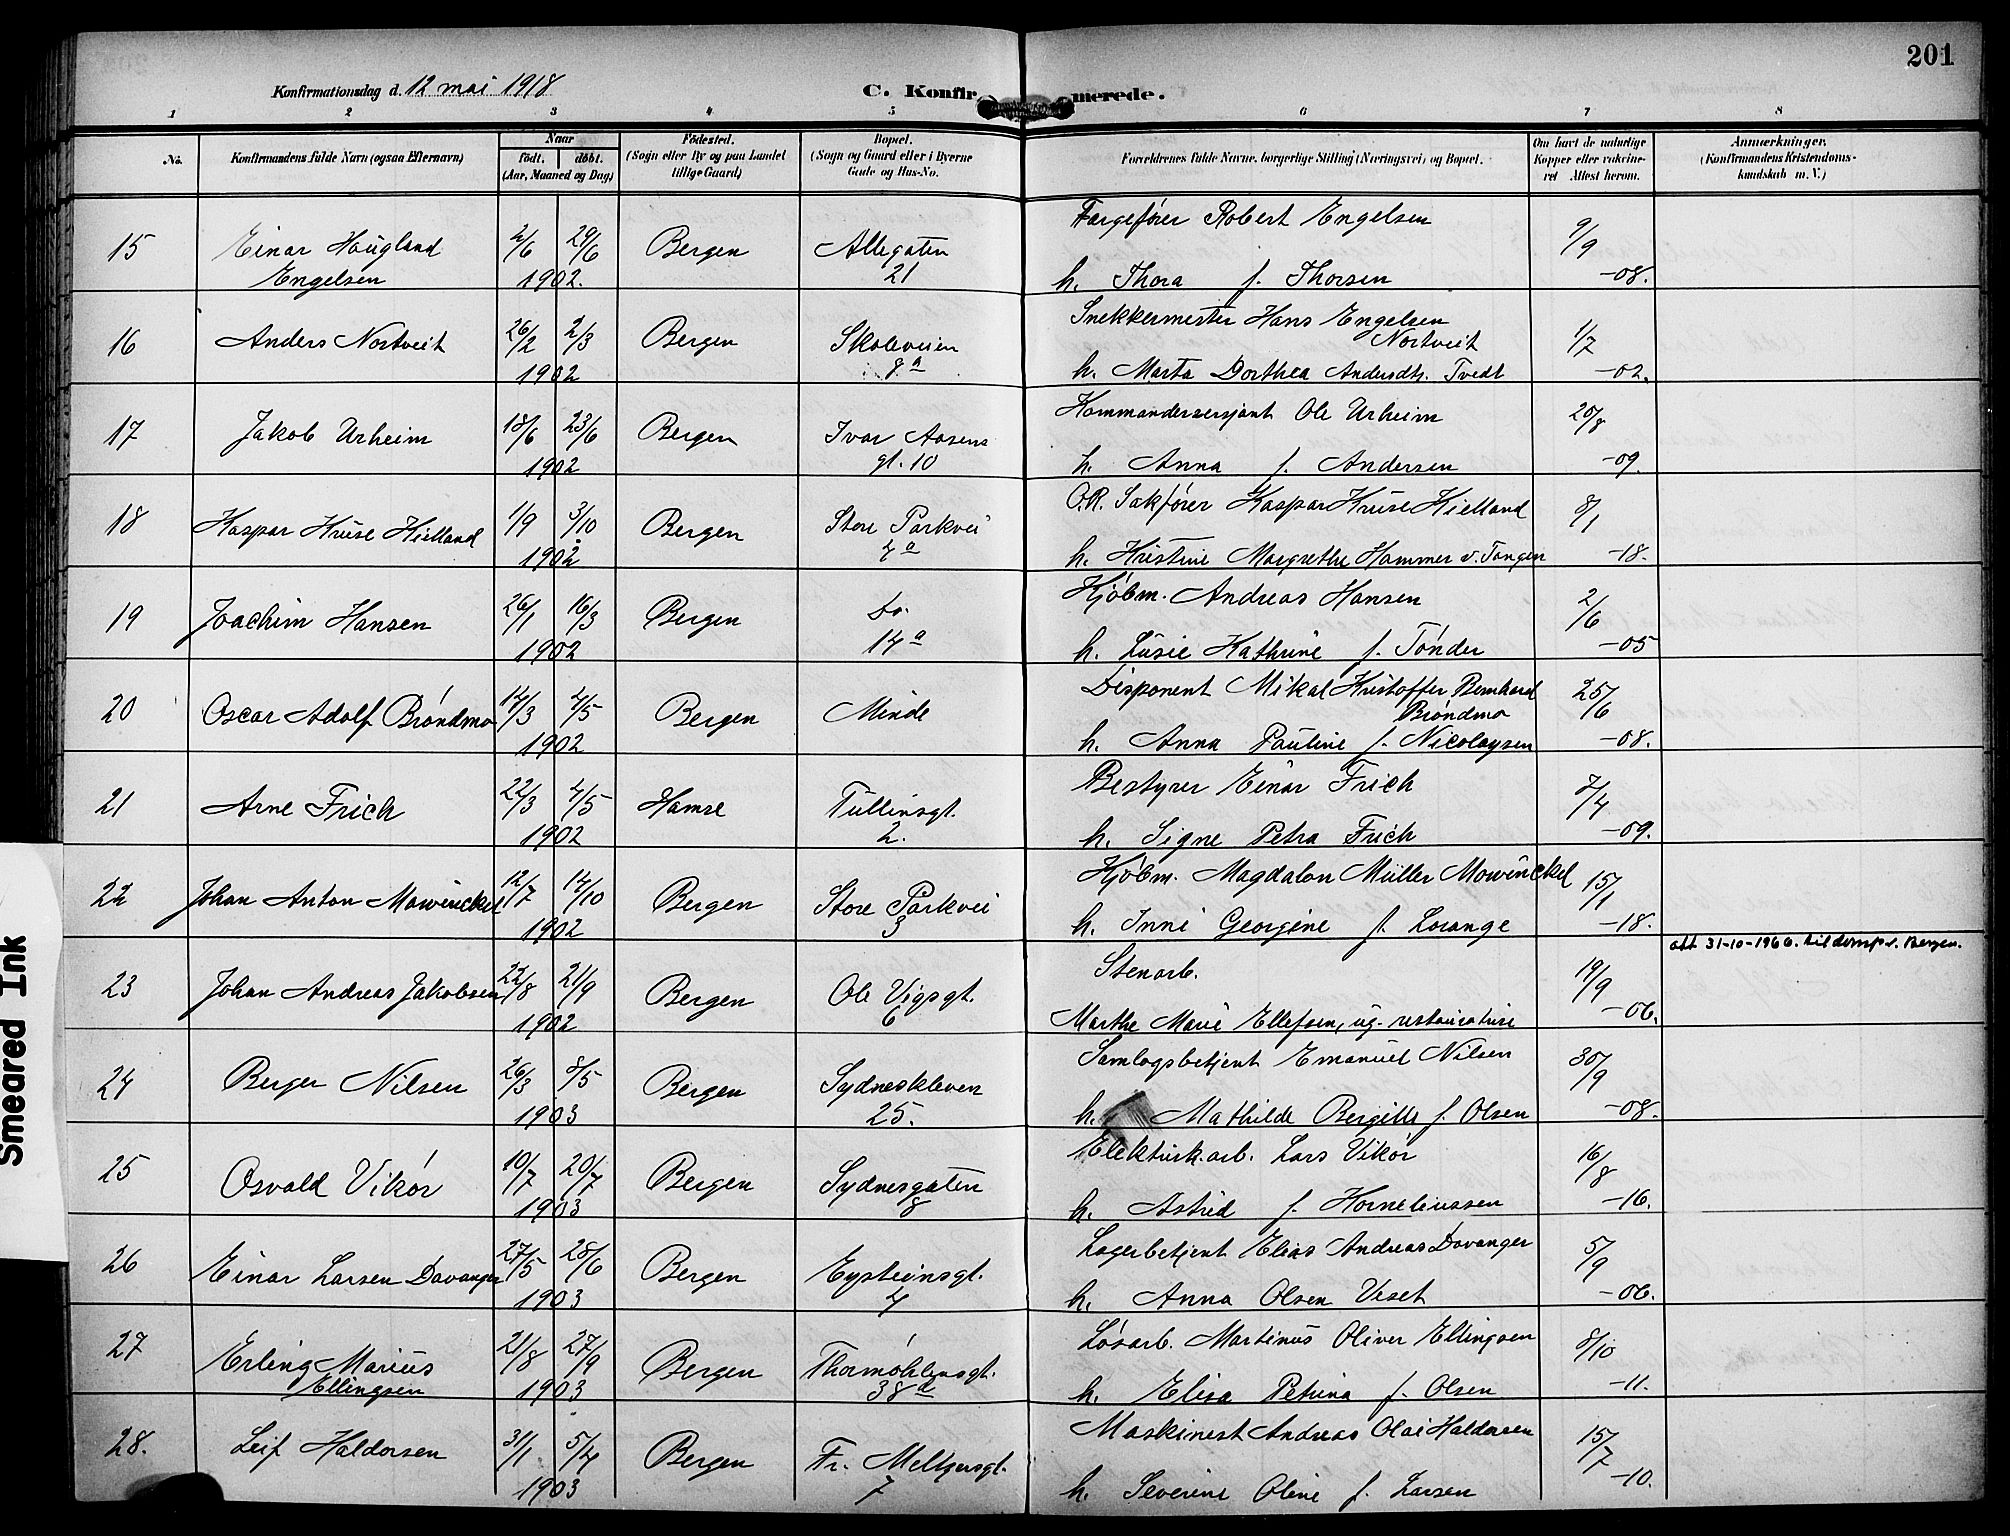 201
Konfirmationsdag d. 12 mai 1918
C. Konfirmerede.
1 2 3 4 5 6 7 8
No.
Konfirmandens fulde Navn (ogsaa Efternavn)
Naar
født. døbt.
(Aar, Maaned og Dag)
Fødested.
(Sogn eller By og paa Landet
tillige Gaard)
Bopæl.
(Sogn og Gaard eller i Byerne
Gade og Hus-No.
Forældrenes fulde Navne, borgerlige Stilling (Næringsvei) og Bopæl.
Om havt de naturlige
Kopper eller vakcine-
ret Attest herom.
Anmærkninger.
(Konfirmandens Kristendoms-
kundskab m. V.)
15 Einar Haugland 2/6 29/6 Bergen Allegaten Fargefører Robert Engelsen 9/9
Engelsen 1902. 21 h. Thora f. Thorsen -08.
16 Anders Nortveit 26/2 2/3 Bergen Skoleveien Snekkermester Hans Engelsen 1/7
Nortveit
1902 8a h. Marta Dorthea Andersdtr. Tvedt -02.
17 Jakob Urheim 18/6 23/6 Bergen Ivar Aasens Kommandersersjant Ole Urheim 20/8
1902 gt. 10 h. Anna f. Andersen -09.
18 Kaspar Kruse Kielland 1/9 3/10 Bergen Store Parkvei O.R. Sakfører Kaspar Kruse Kielland 8/1
1902 4a h. Kristine Margrethe Hammer v. Tangen -18.
19 Joachim Hansen 26/1 16/3 Bergen do. Kjøbm. Andreas Hansen 2/6
1902 14a h. Lusie Kathrine f. Tønder -05
20 Oscar Adolf Brøndmo 14/3 4/5 Bergen Minde Disponent Mikal Kristoffer Bernhard 25/6
Brøndmo
1902 h. Anna Pauline f. Nicolaysen -08.
21 Arne Frich 22/3 4/5 Hamre Tullinsgt. Bestyrer Einar Frich 7/4
1902 2. h. Signe Petra Frich -09.
22 Johan Anton Mowinckel 12/7 14/10 Bergen Store Parkvei Kjøbm. Magdalon Müller Mowinckel 15/1
1902 3 h. Inni Georgine f. Lorange -18.
att 31-10-1966. til domp.v. Bergen.
23 Johan Andreas Jakobsen 22/8 21/9 Bergen Ole Vigsgt. Stenarb. 19/9
1902 6 Marthe Marie Ellefsen, ug. restauratrise -06.
24 Berger Nilsen 26/3 8/5 Bergen Sydneskleven Samlagsbetjent Emanuel Nilsen 30/9
1903 25. h. Mathilde Bergitte f. Olsen -08.
25 Osvald Vikør 10/7 20/7 Bergen Sydnesgaten Elektrisk.arb. Lars Vikør 16/8
1903 8 h. Astrid f. Korneliussen -16.
26 Einar Larsen Davanger 27/5 28/6 Bergen Eysteinsgt. Lagerbetjent Elias Andreas Davanger 5/9
1903 4 h. Anna Olsen Veset -06.
27 Erling Marius 21/8 27/9 Bergen Thormøhlensgt. Løsarb. Martinus Oliver Ellingsen 8/10
Ellingsen 1903 38d h. Elisa Petrina f. Olsen -11.
28. Leif Haldorsen 31/1 5/4 Bergen Fr. Meltzersgt. Maskinest Andreas Olai Haldorsen 15/7
1903 7 h. Severine Oline f. Larsen -10.
Smeared Ink